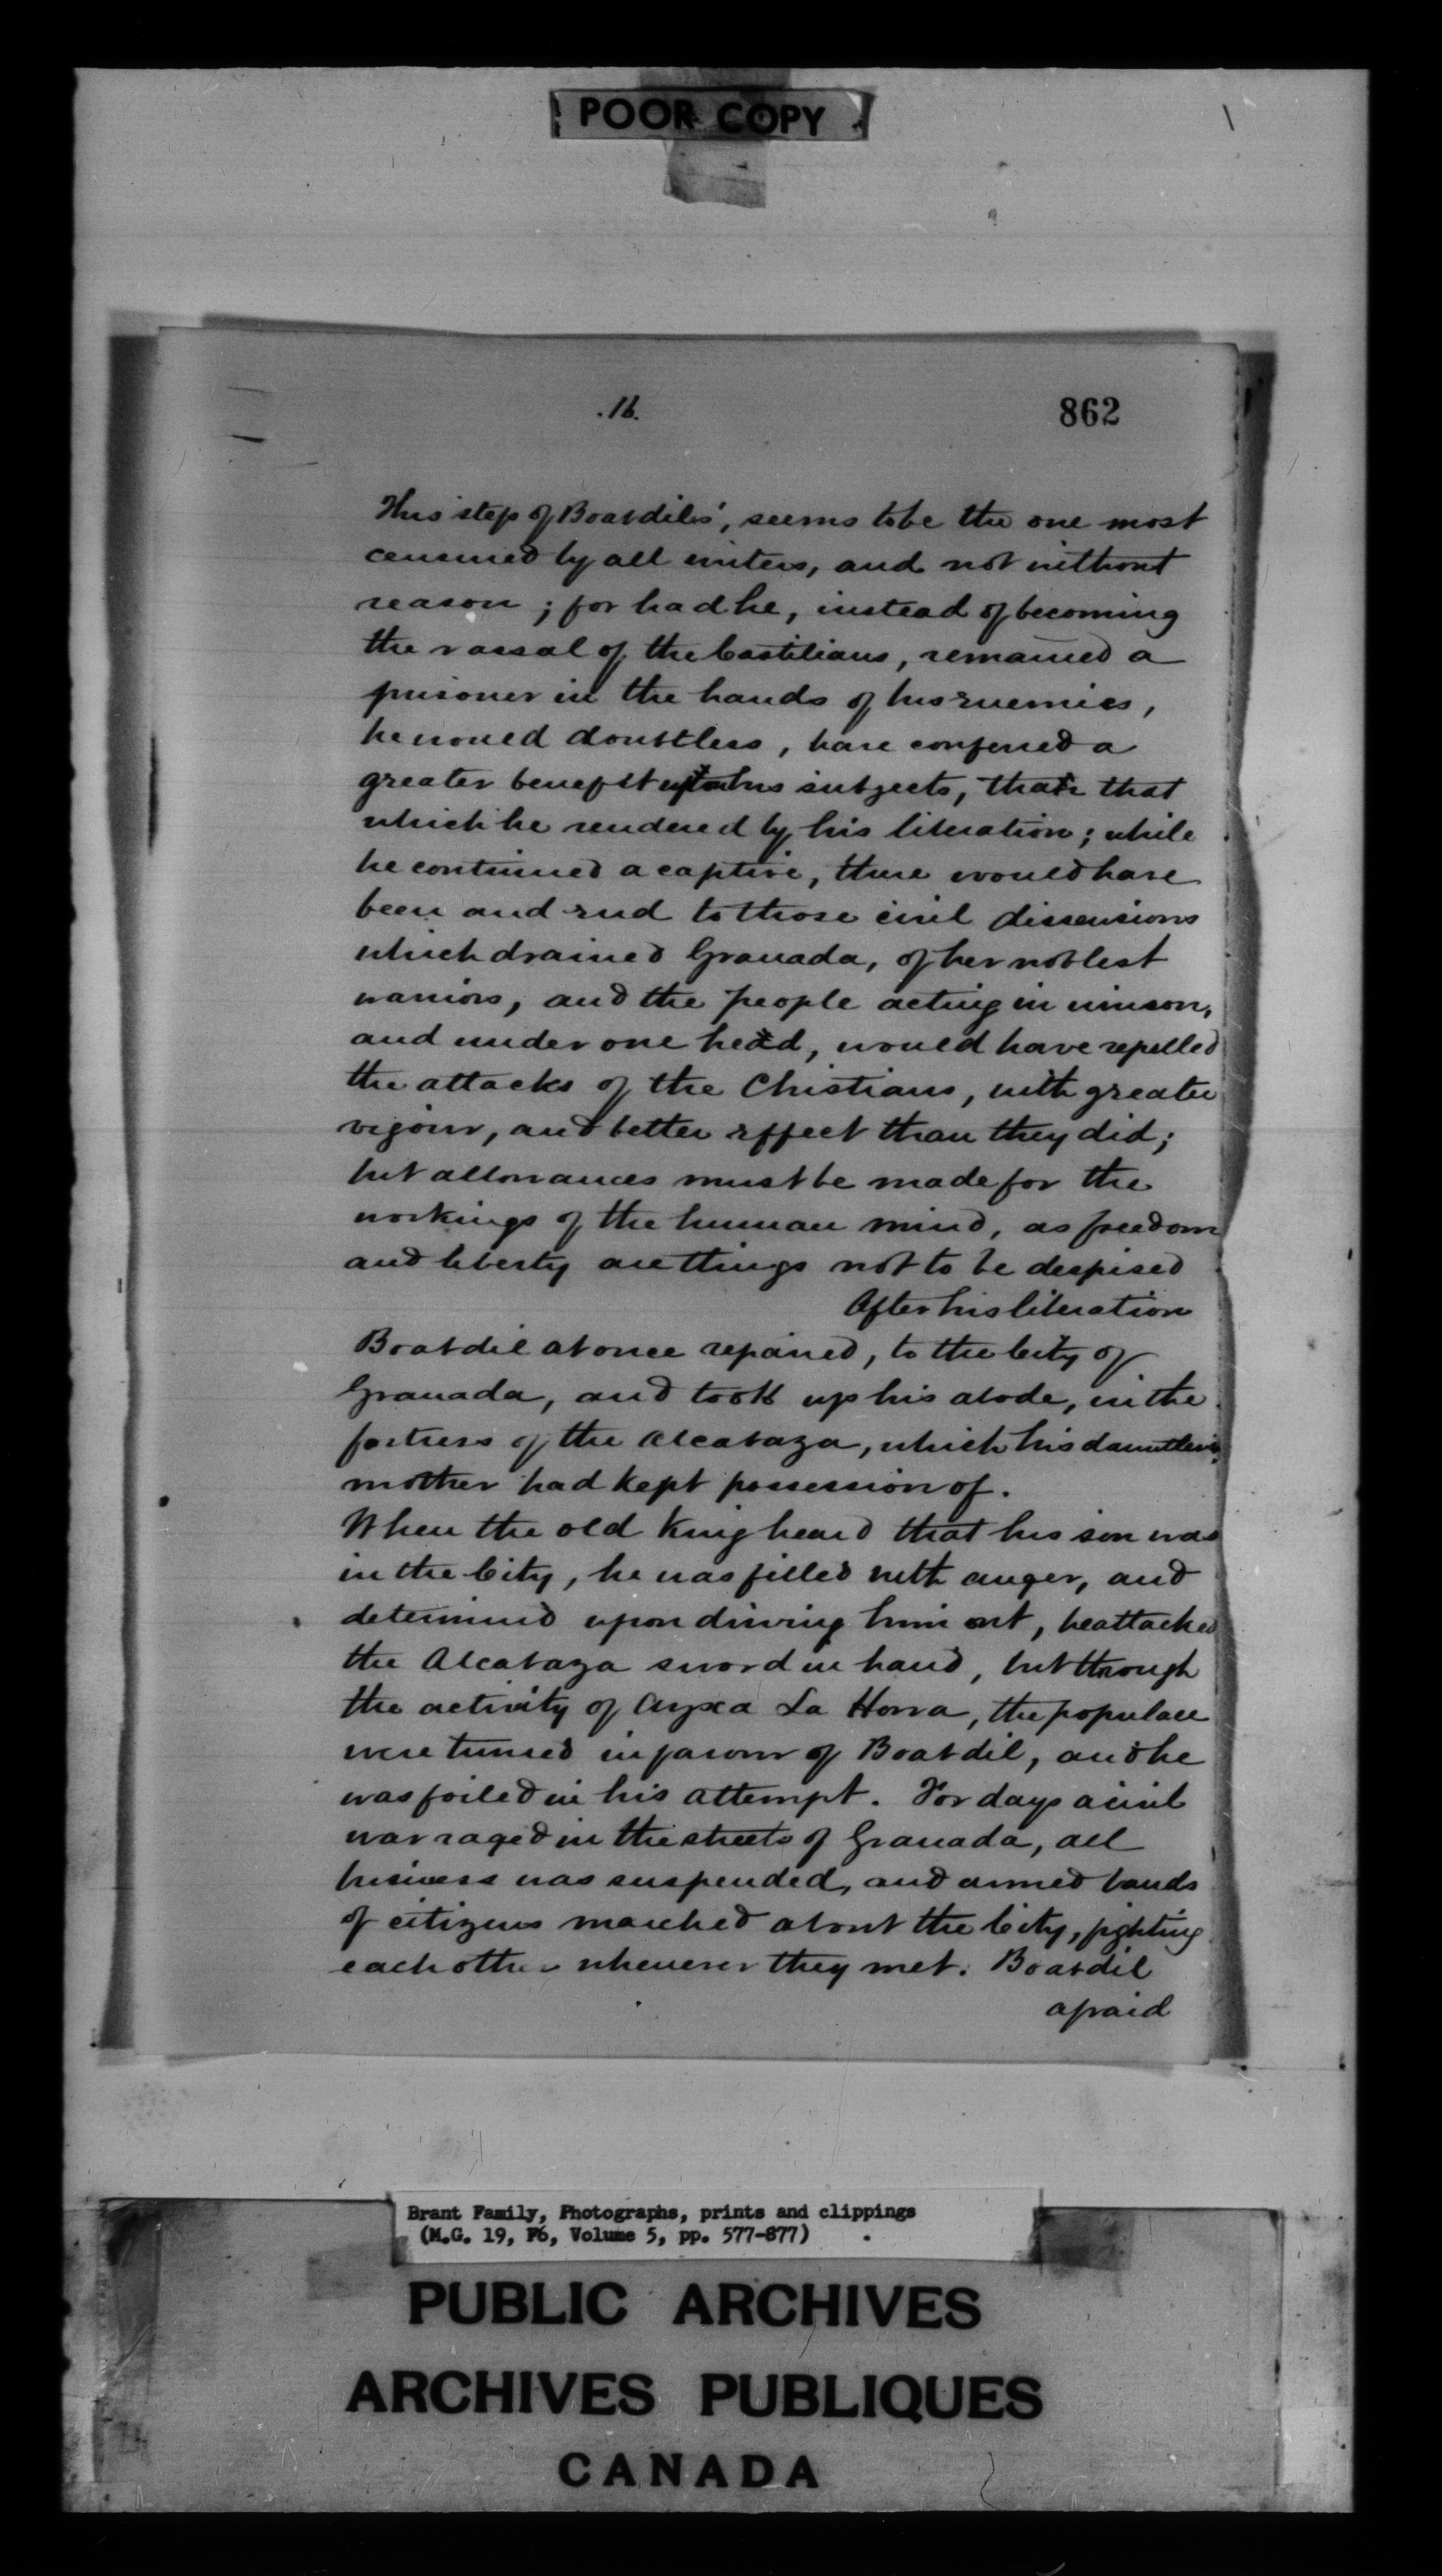 POOR COPY
.16.
862
This step of Boabdils', seems to be the one most
censured by all writers, and not without
reason; for had he, instead of becoming
the vassal of the Castilians, remained a
prisoner in the hands of his enemies,
he would doubtless, have conferred a
greater benefit his subjects, than that
which he rendered by his liberation; while
he continued a captive, there would have
been and end to those civil dissensions
which drained Granada, of her noblest
warriors, and the people acting in unison,
and under one head, would have repelled
the attacks of the Christians, with greater
vigour, and better effect than they did;
but allowances must be made for the
workings of the human mind, as freedom
and liberty are things not to be despised
After his liberation
Boabdil at once repaired, to the City of
Granada, and took up his abode, in the
fortress of the Alcabaza, which his dauntless
mother had kept possession of.
When the old King heard that his son was
in the City, he was filled with anger, and
determined upon driving him out, he attacked
the Alcabaza sword in hand, but through
the activity of Ayxa La Horra, the populace
were turned in favour of Boabdil, and he
was foiled in his attempt. For days a civil
war raged in the streets of Granada, all
business was suspended, and armed bands
of citizens marched about the City, fighting
each other whenever they met. Boabdil
afraid
Brant Family, Photographs, prints and clippings
(M.G. 19, F6, Volume 5, pp. 577-877)
PUBLIC ARCHIVES
ARCHIVES PUBLIQUES
CANADA